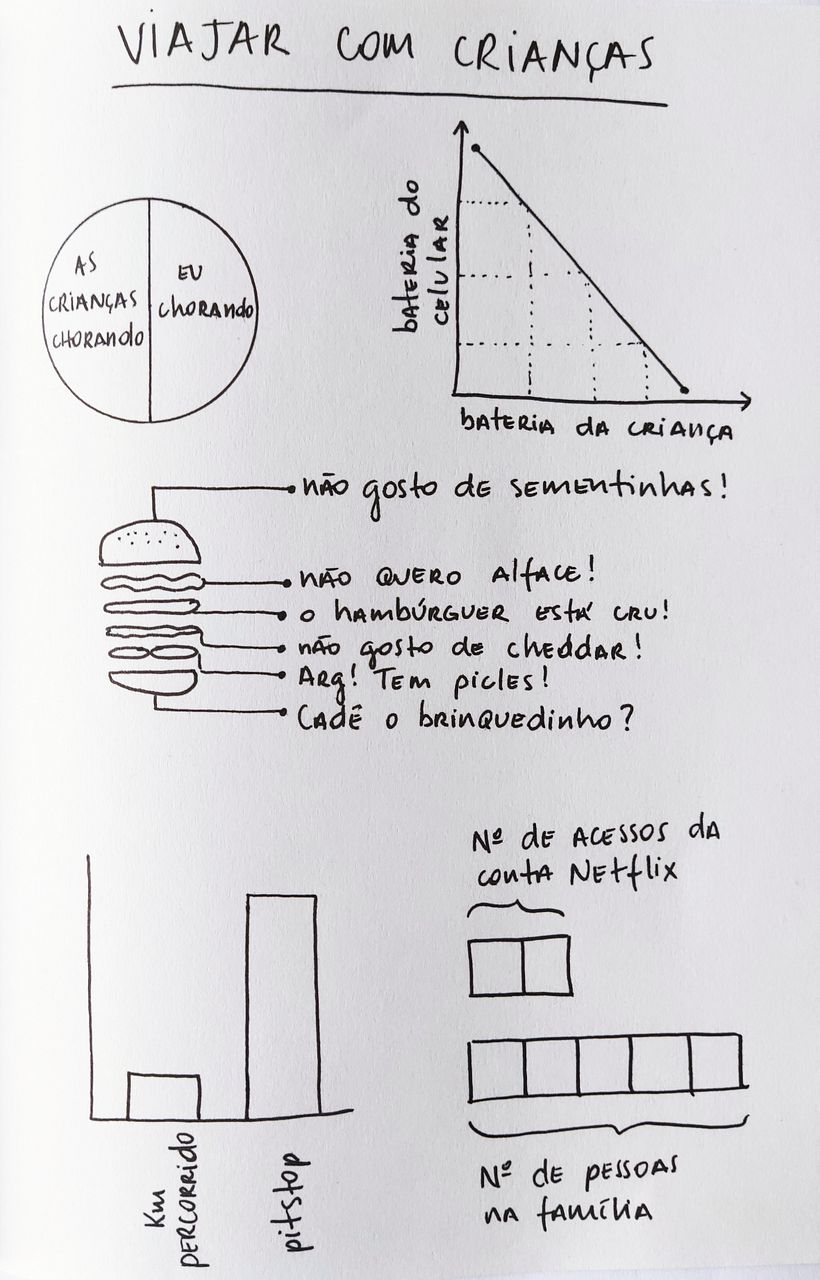 VIAJAR COM CRIANÇAS
AS
CRIANÇAS
CHORANDO
EU
CHORANDO
bateria do
celular
bateria da criança
não gosto de sementinhas!
não quero alface!
o hambúrguer está cru!
não gosto de cheddar!
Arg! Tem picles!
Cadê o brinquedinho?
Km
percorrido
pitstop
Nº de acessos da
conta Netflix
Nº de pessoas
na família